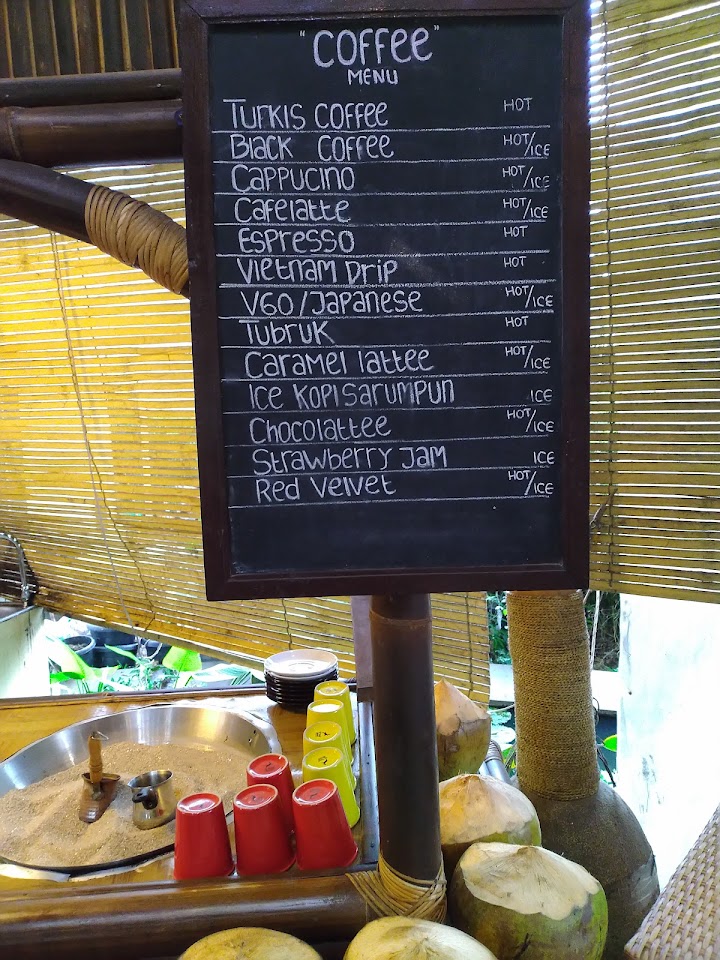 "COFFEE"
MENU
TURKIS COFFEE HOT
BLACK COFFEE HOT/ICE
CAPPUCINO HOT/ICE
CAFELATTE HOT/ICE
ESPRESSO HOT
VIETNAM DRIP HOT
V60/JAPANESE HOT/ICE
TUBRUK HOT
CARAMEL LATTEE HOT/ICE
ICE KOPI SARUMPUN ICE
CHOCOLATTEE HOT/ICE
STRAWBERRY JAM ICE
RED VELVET HOT/ICE